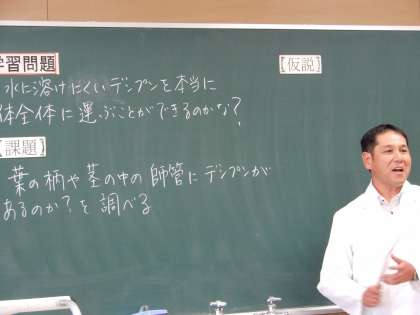 学習問題
水に溶けにくいデンプンを本当に
体全体に運ぶことができるのかな?
【課題】
葉の柄や茎の中の師管にデンプンが
あるのか?を調べる
【仮説】